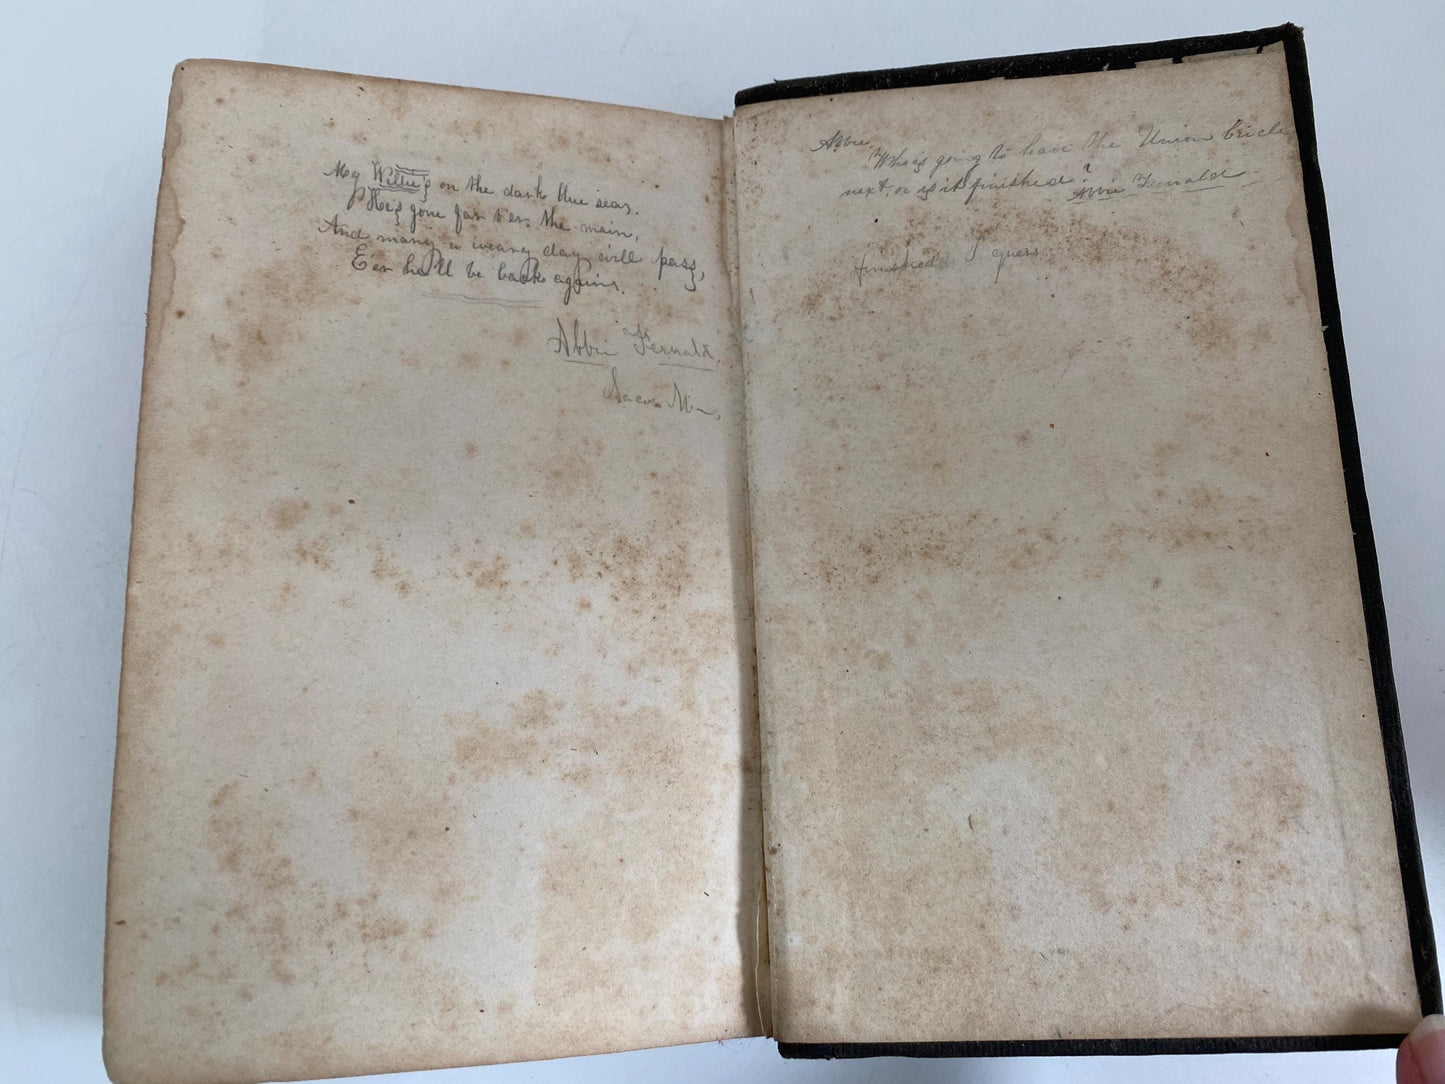 My Willie's on the dark blue seas,
He's gone far o'er the main,
And many a weary day will pass,
E'er he'll be back again.
Abbie Fernald,
Saco. Me.
Abbie,
Who is going to have the Union
next, or is it finished?
Abbie Fernald
finished I guess